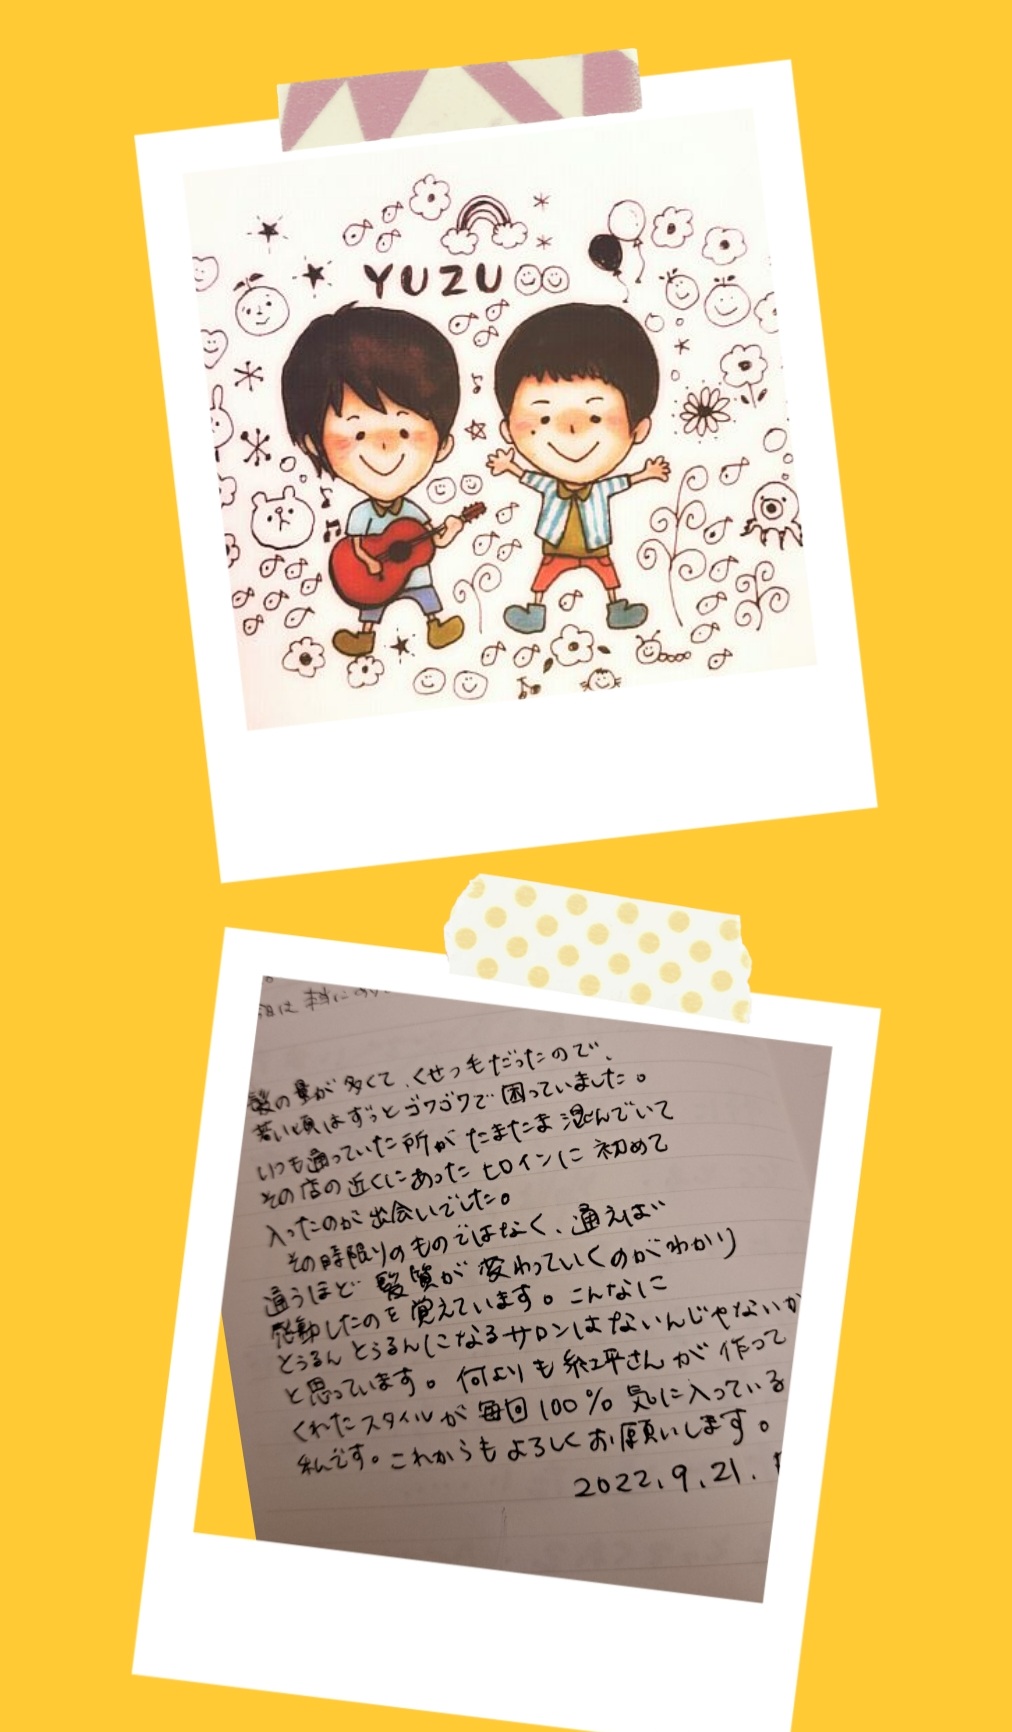 YUZU
今日は 本当に
髪の量が多くて、くせっ毛だったので、
若い頃はずっとゴワゴワで困っていました。
いつも通っていた所がたまたま混んでいて
その店の近くにあったヒロインに初めて
入ったのが出会いでした。
その時限りのものではなく、通えば
通うほど髪質が変わっていくのがわかり
感動したのを覚えています。こんなに
とぅるんとぅるんになるサロンはないんじゃないか
と思っています。何よりも紅平さんが作って
くれたスタイルが毎回100%気に入っている
私です。これからもよろしくお願いします。
2022.9.21.